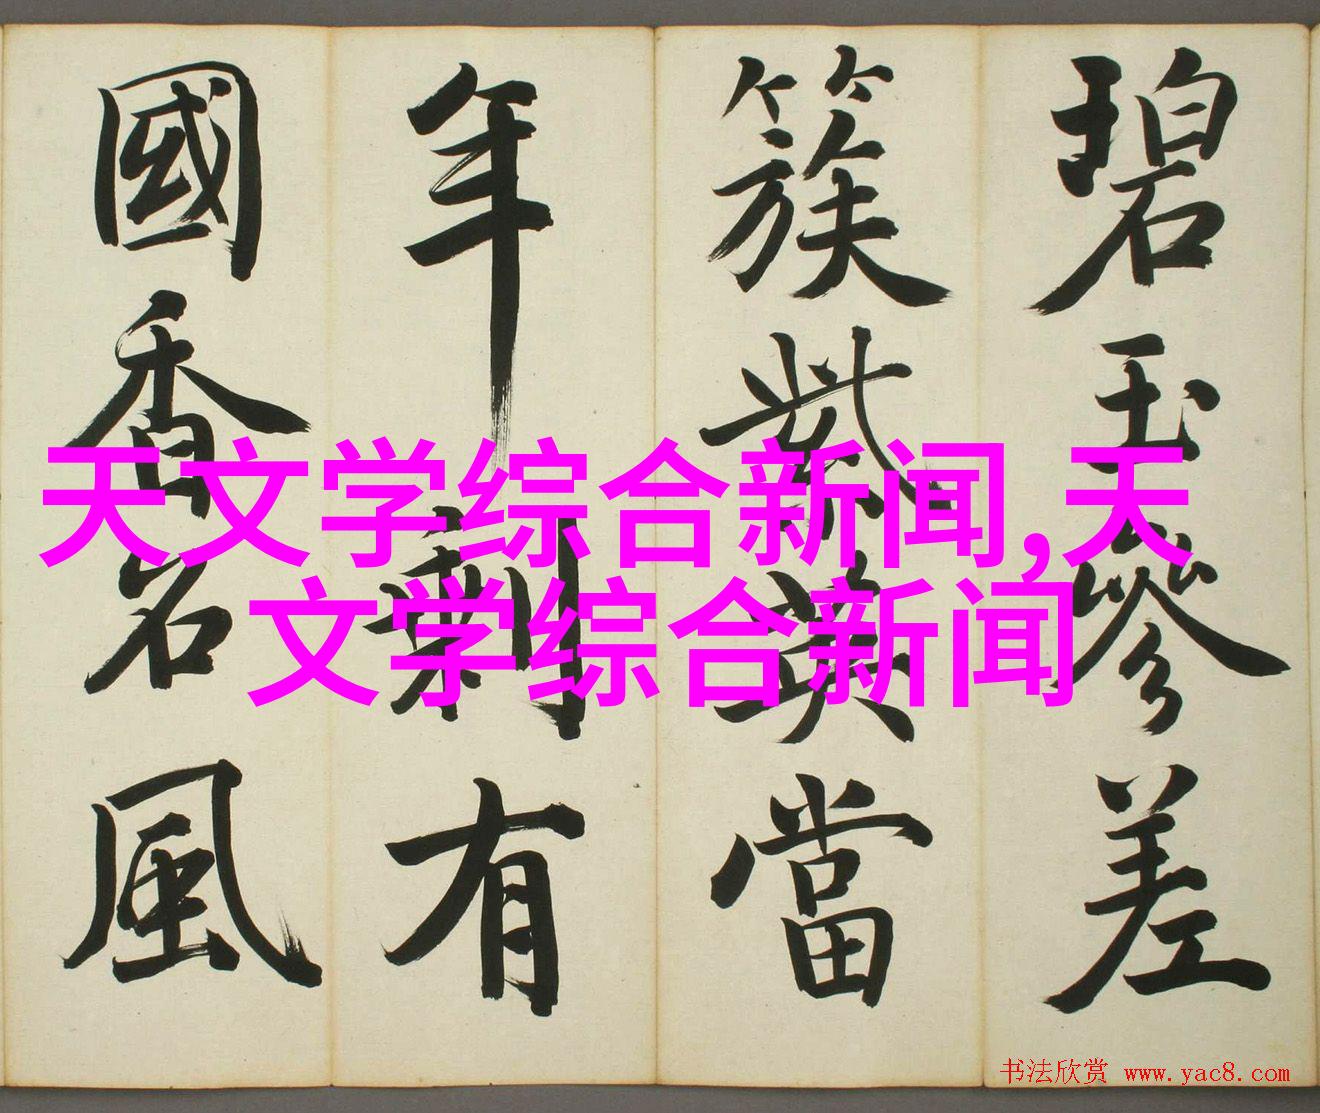 碧玉參差
簇紫英當
年剩有
國香名風
天文学综合新闻,天
文学综合新闻
书法欣赏 www.yac8.com